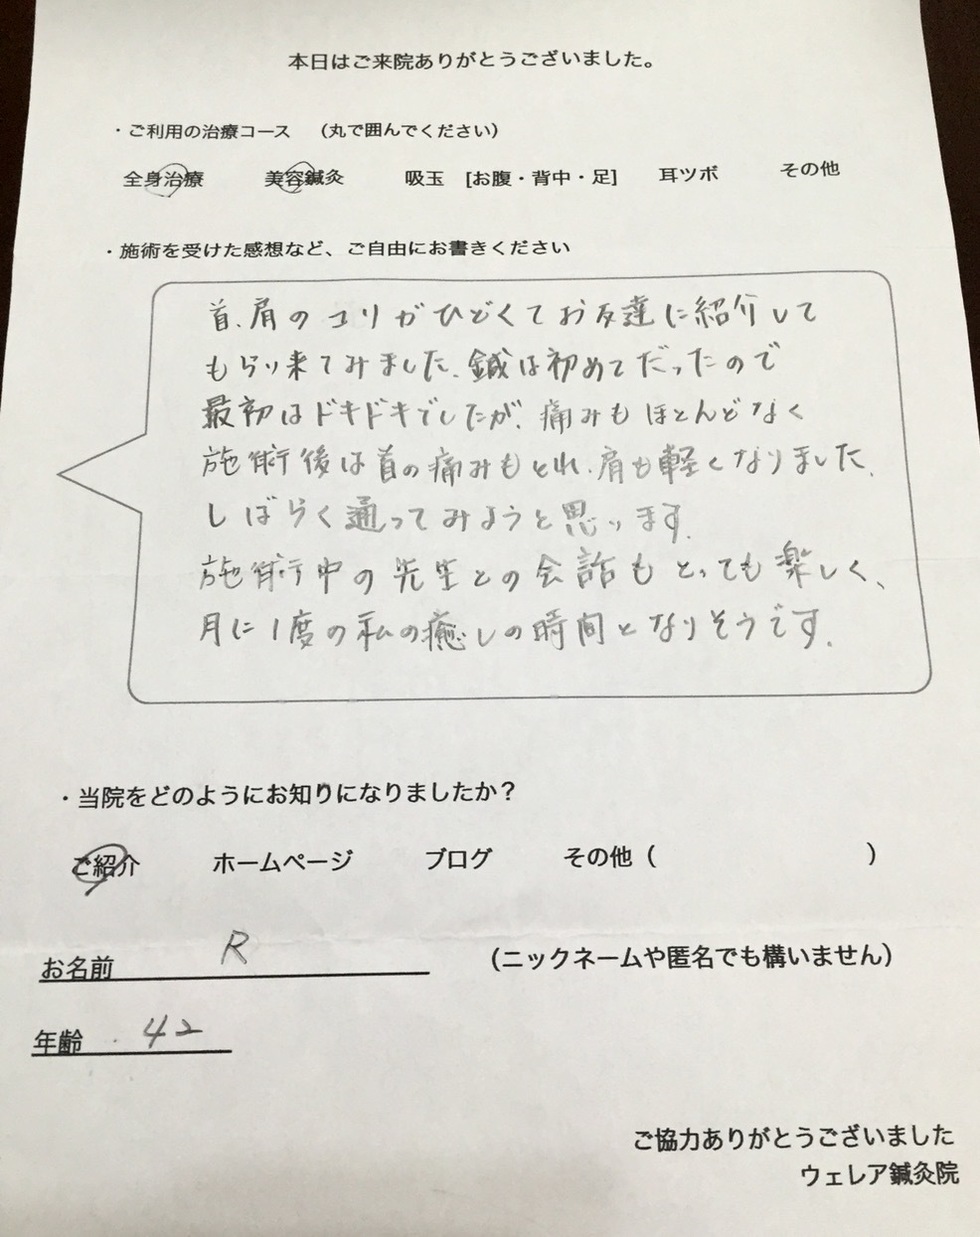 本日はご来院ありがとうございました。
・ご利用の治療コース　（丸で囲んでください）
全身治療　美容鍼灸　吸玉　[お腹・背中・足]　耳ツボ　その他
・施術を受けた感想など、ご自由にお書きください
首、肩のコリがひどくてお友達に紹介して
もらい来てみました。鍼は初めてだったので
最初はドキドキでしたが、痛みもほとんどなく
施術後は首の痛みもとれ、肩も軽くなりました。
しばらく通ってみようと思います。
施術中の先生との会話もとっても楽しく、
月に1度の私の癒しの時間となりそうです。
・当院をどのようにお知りになりましたか？
ご紹介　ホームページ　ブログ　その他（　　　　）
お名前　R　（ニックネームや匿名でも構いません）
年齢　42
ご協力ありがとうございました
ウェレア鍼灸院